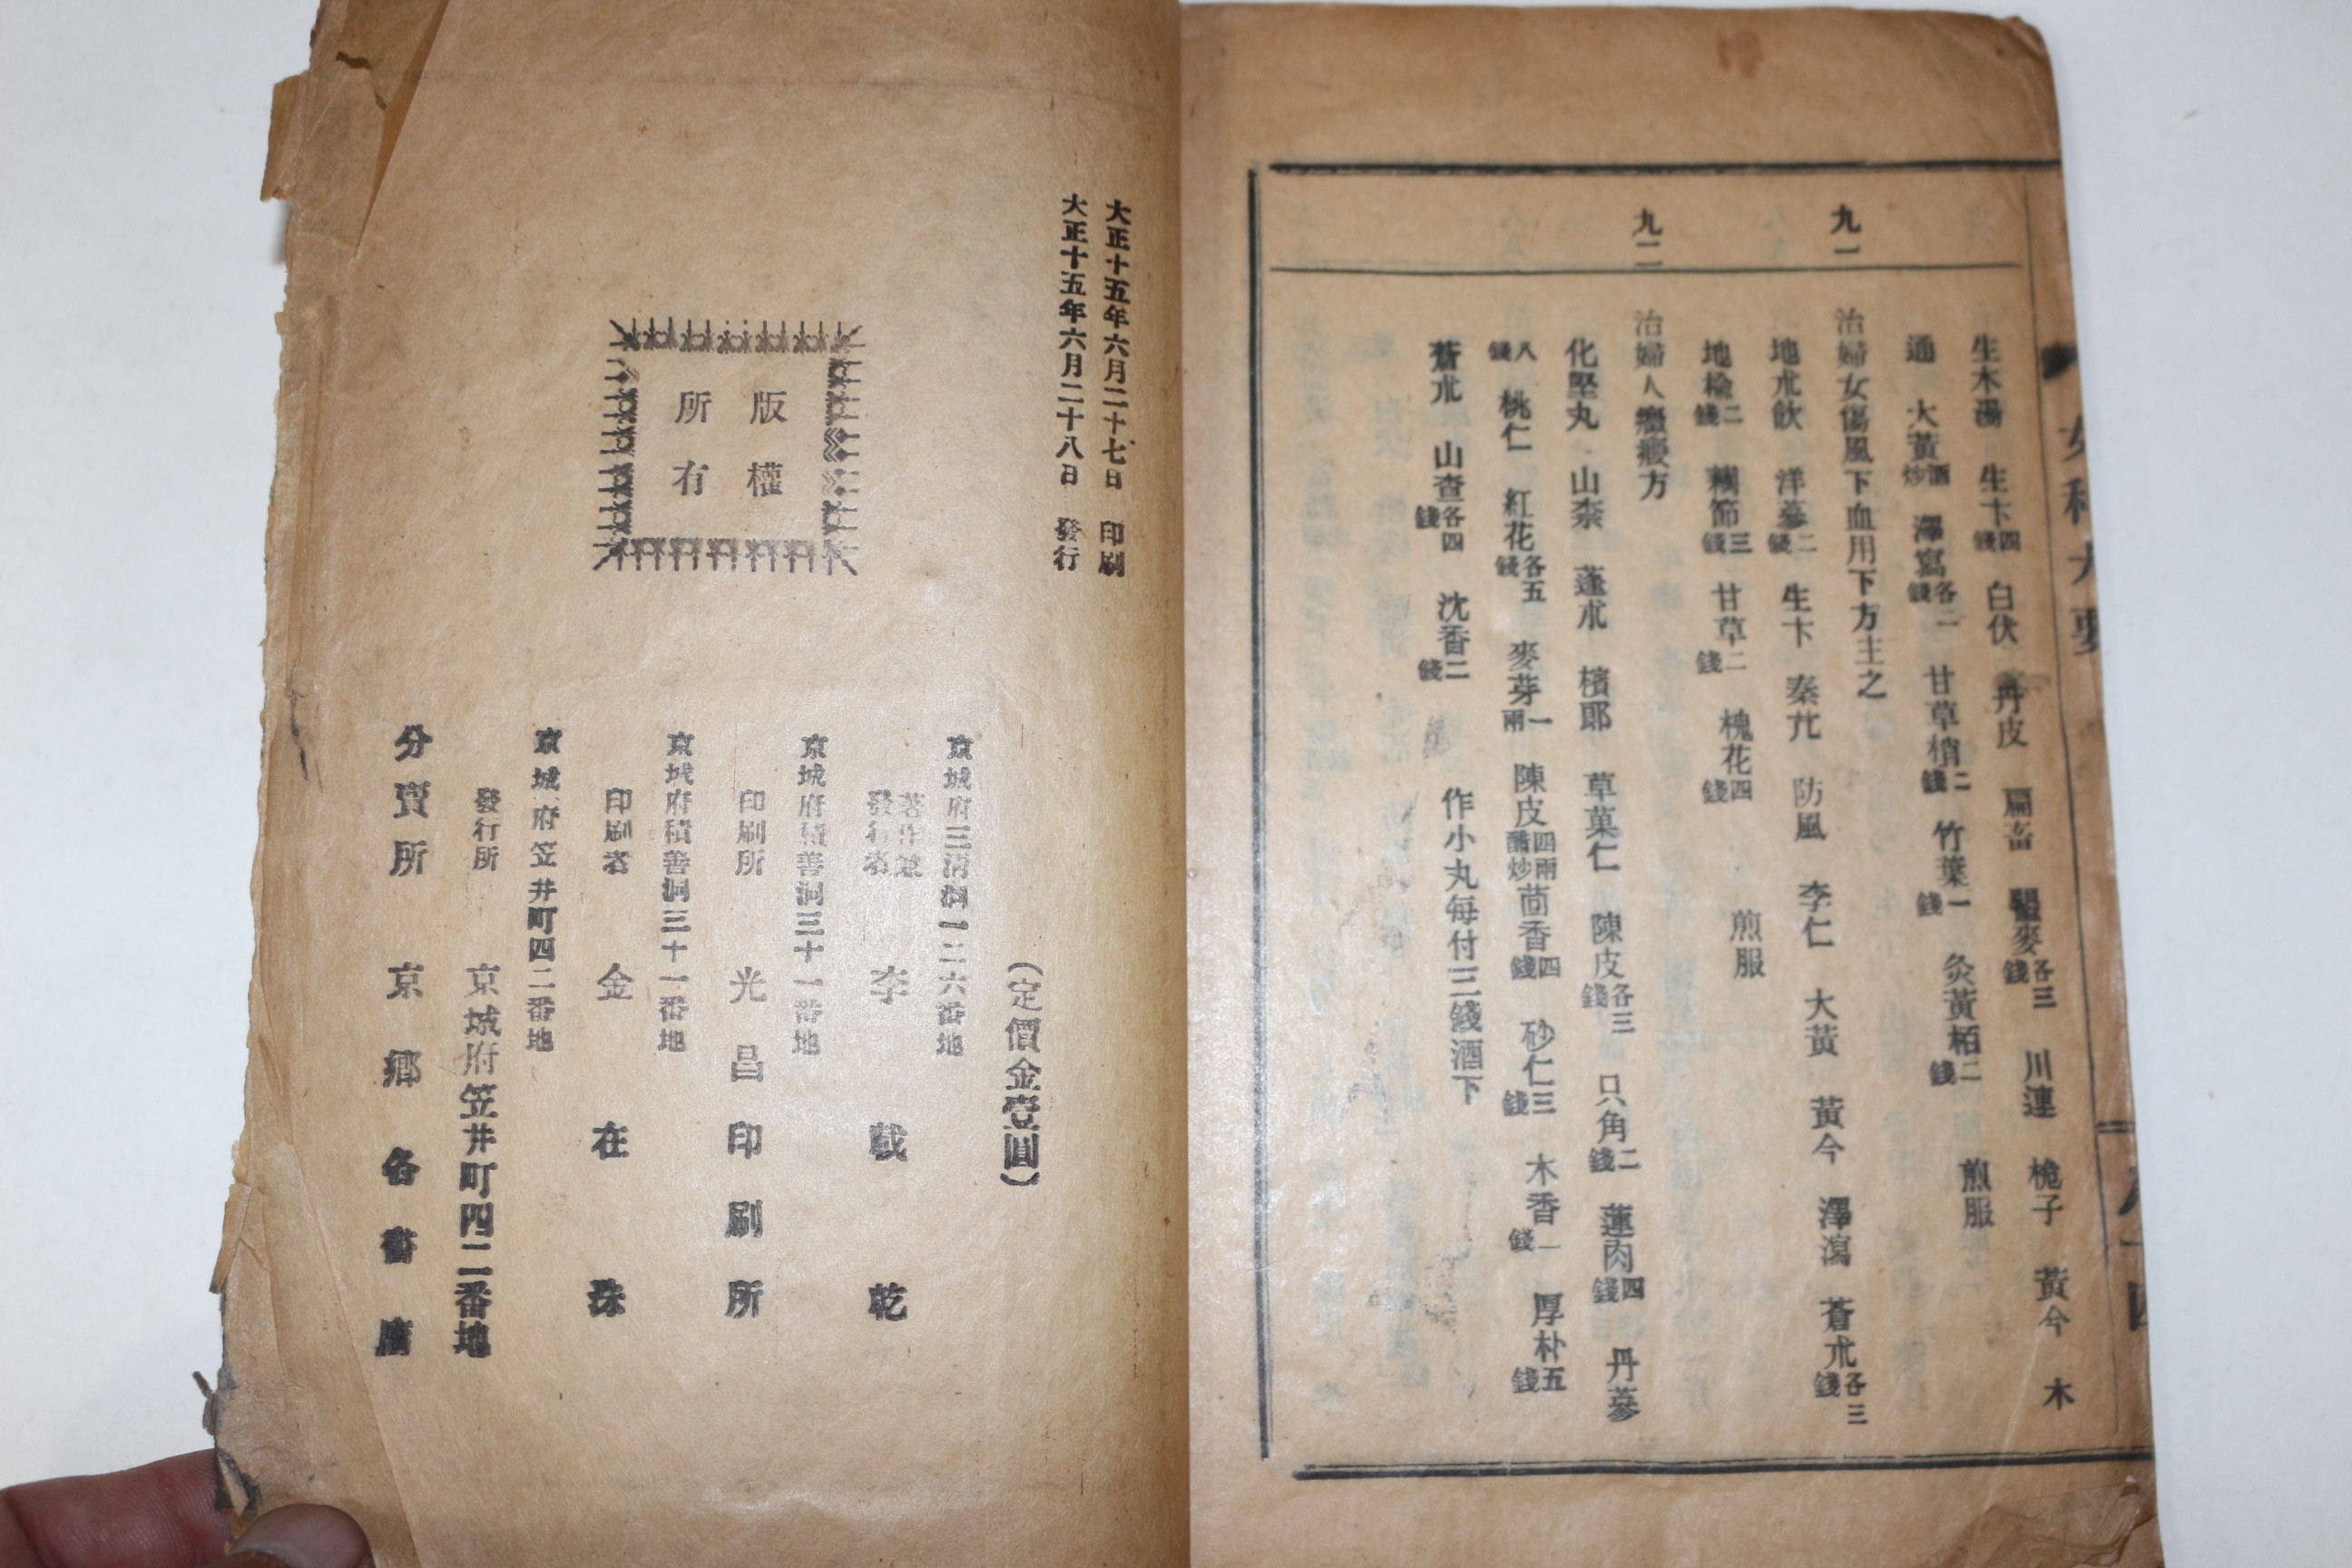 生木湯 生卞四錢 白伏 丹皮 扁畜 瞿麥各三錢 川連 梔子 黃今 木
通 大黃酒炒 澤寫各二錢 甘草梢二錢 竹葉一錢 灸黃栢二錢 煎服
九一
治婦女傷風下血用下方主之
地朮飮 洋蔘二錢 生卞 秦艽 防風 李仁 大黃 黃今 澤瀉 蒼朮各三錢
地楡二錢 藕節三錢 甘草二錢 槐花四錢 煎服
九二
治婦人癥瘕方
化堅丸 山柰 蓬朮 檳郞 草菓仁 陳皮各三錢 只角二錢 蓮肉四錢 丹蔘
八錢 桃仁 紅花各五錢 麥芽一兩 陳皮四兩醋炒 茴香四錢 砂仁三錢 木香一錢 厚朴五錢
蒼朮 山査各四錢 沈香二錢 作小丸每付三錢酒下
大正十五年六月二十七日 印刷
大正十五年六月二十八日 發行
版權
所有
(定價金壹圓)
京城府三淸洞一二六番地
著作兼發行者 李載乾
京城府積善洞三十一番地
印刷所 光昌印刷所
京城府積善洞三十一番地
印刷者 金在珠
京城府笠井町四二番地
發行所 京城府笠井町四二番地
分賣所 京鄉各書廛